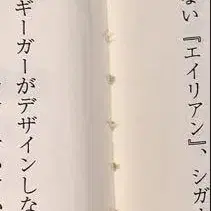 ない『エイリアン』、シガ
ギーガーがデザインしな